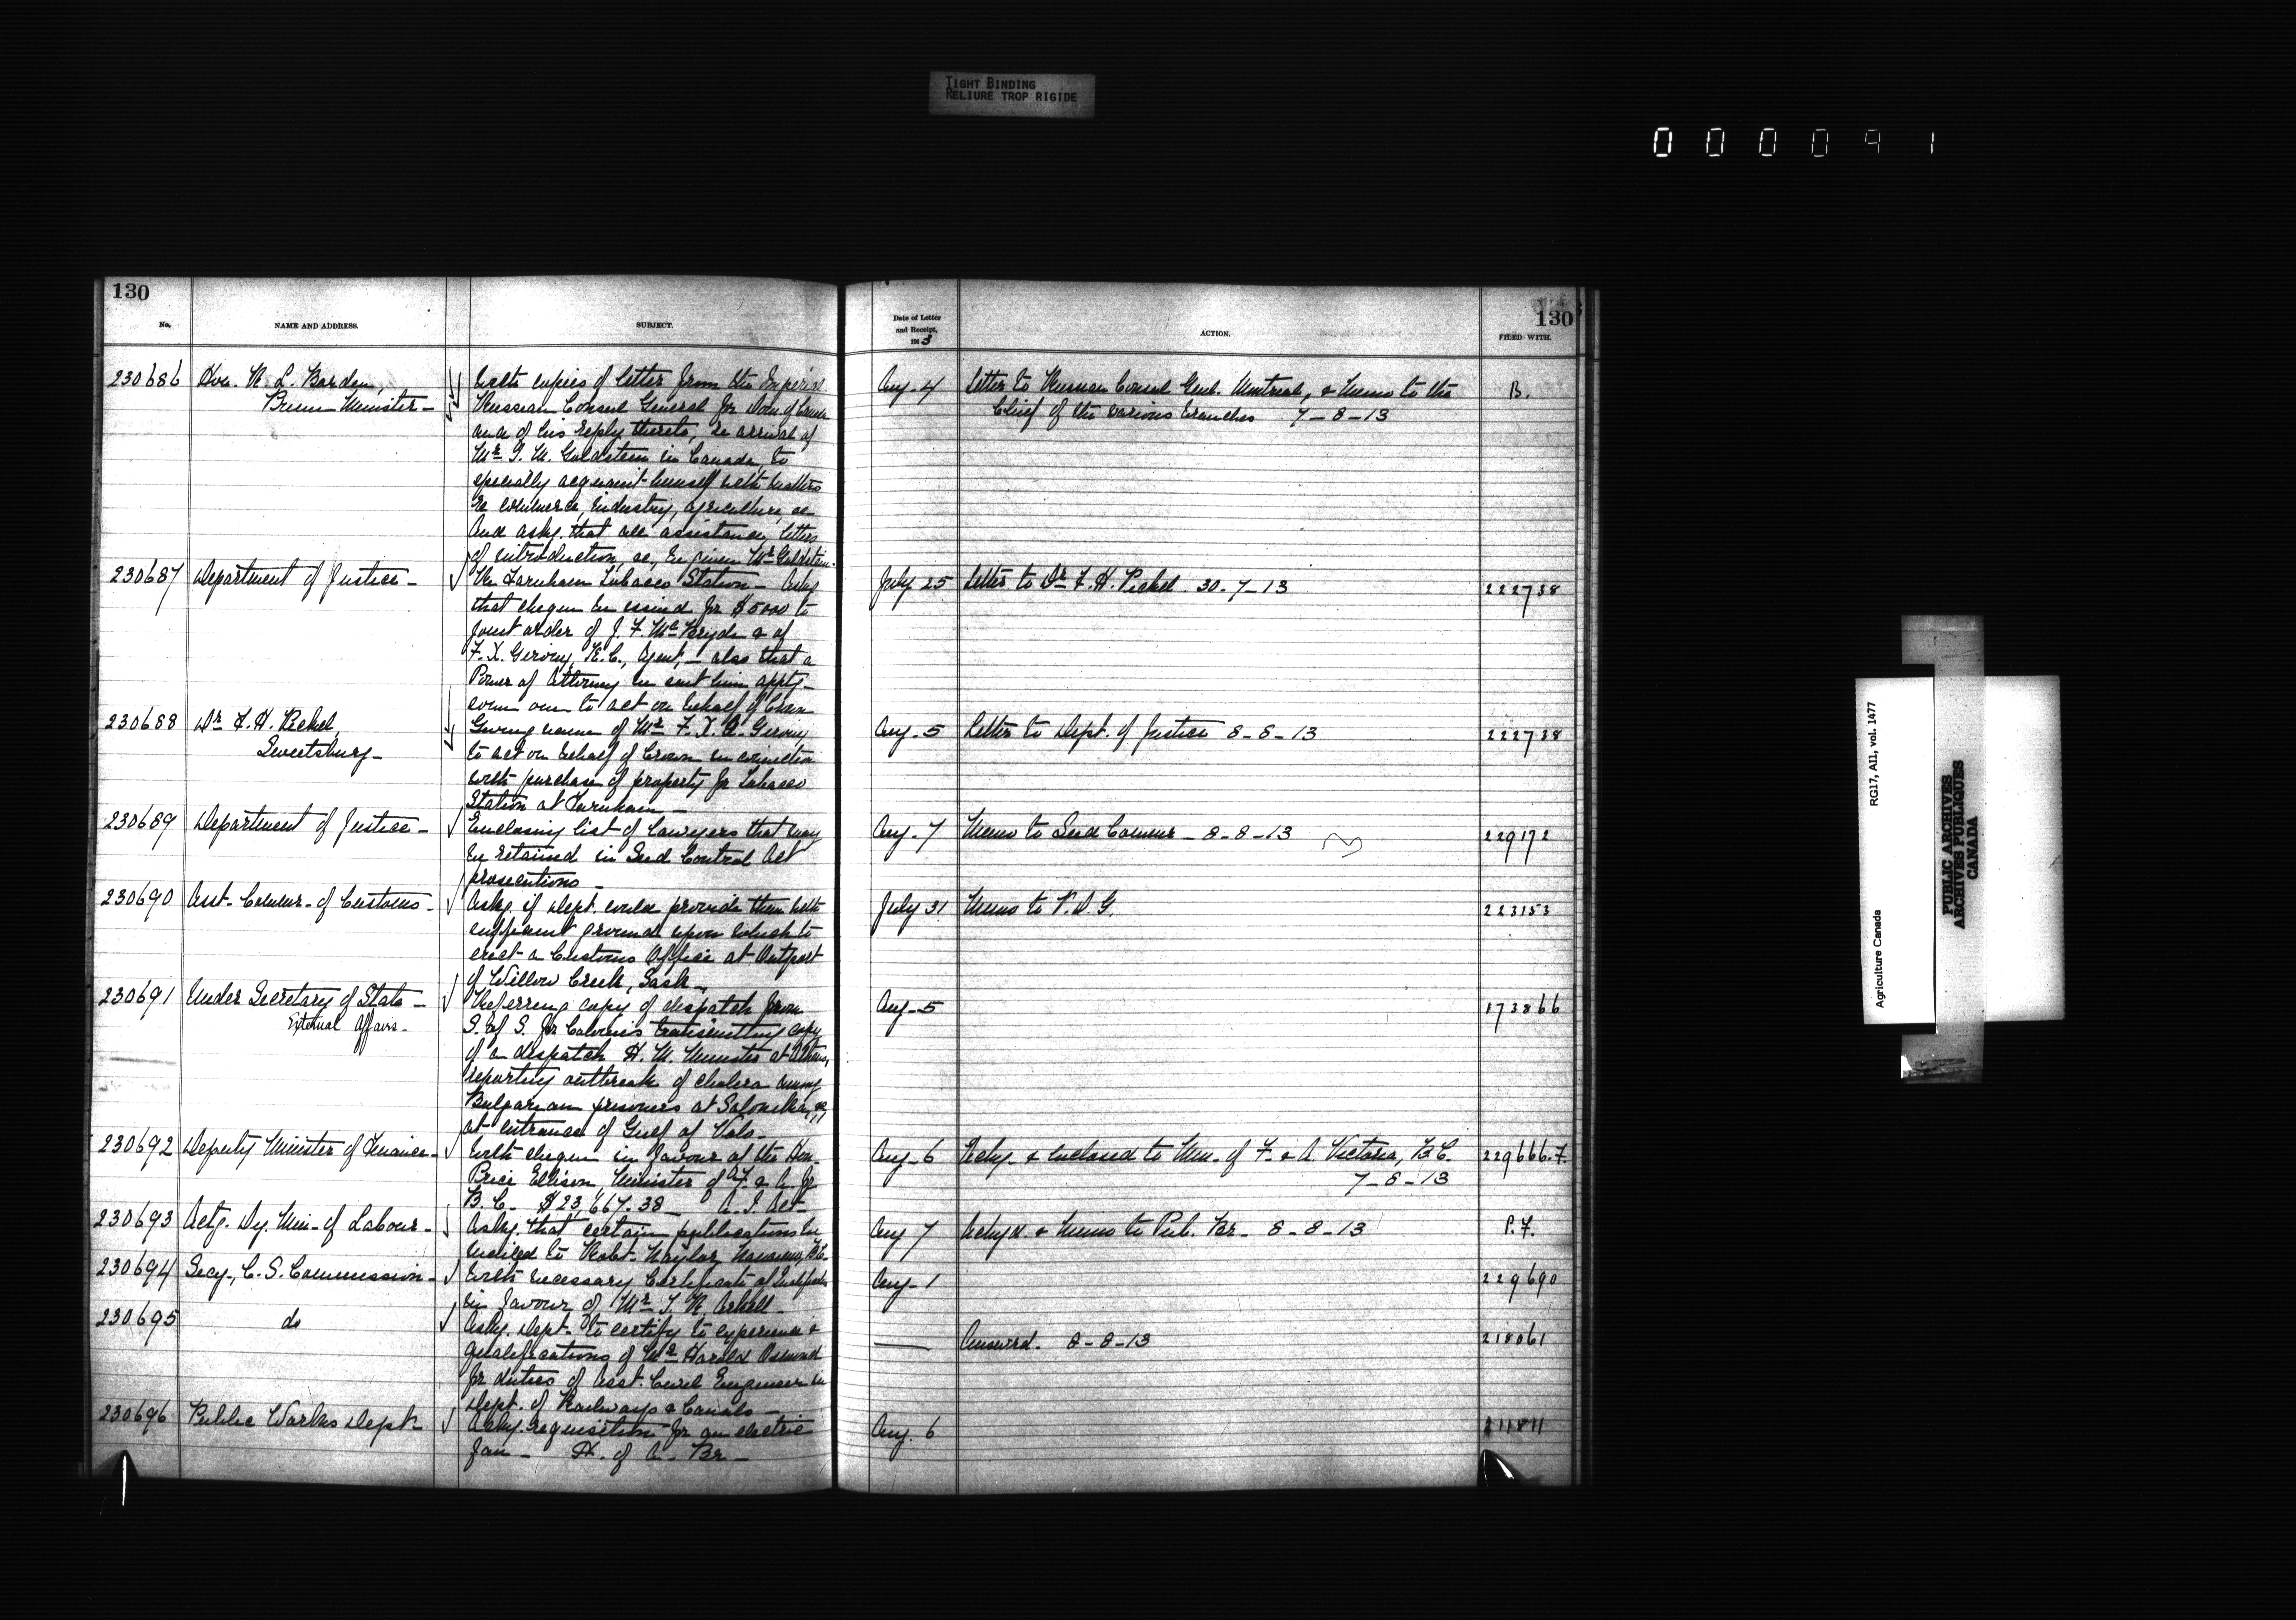 TIGHT BINDING
RELIURE TROP RIGIDE
000091
130
No.
NAME AND ADDRESS.
SUBJECT.
Date of Letter
and Receipt,
1913
ACTION.
130
FILED WITH.
230686 Hon. R. L. Borden, With copies of letter from the Imperial Aug. 4 Letter to Russian Consul Genl. Montreal, & Memo to the B.
Prime Minister - Russian Consul General for Dom. of Canada Chief of the various branches 7-8-13
and of his reply thereto, re arrival of
Mr. I. M. Goldstein in Canada, to
specially acquaint himself with matters
re commerce, industry, agriculture, &c
And asks. that all assistance, letters
of introduction, &c, be given Mr Goldstein.
230687 Department of Justice - Re Farnham Tobacco Station - Asks July 25 Letter to Dr F. H. Pickel 30-7-13 222738
that cheque be issued for $5000 to
joint order of J. F. McBryde & of
F. X. Giroux, K.C., Agent, - also that a
Power of Attorney be sent him apptg-
some one to act on behalf of Crown
230688 Dr F. H. Pickel, Giving name of Mr F. X. A. Giroux Aug. 5 Letter to Dept. of Justice 8-8-13 222738
Sweetsburg - to act on behalf of Crown in connection
with purchase of property for Tobacco
Station at Farnham -
230689 Department of Justice - Enclosing list of lawyers that may Aug. 7 Memo to Seed Commr - 8-8-13 229172
be retained in Seed Control Act
prosecutions -
230690 Asst. Commr. of Customs - Asks. if Dept. could provide them with July 31 Memo to V. D. G. 223153
sufficient ground upon which to
erect a Customs Office at Outport
of Willow Creek, Sask -
230691 Under Secretary of State - Referring copy of despatch from Aug. 5 173866
External Affairs - S. of S. for Colonies transmitting copy
of a despatch H. M. Minister at Athens,
reporting outbreak of cholera among
Bulgarian prisoners at Salonika, &
at entrance of Gulf of Volo -
230692 Deputy Minister of Finance - With cheque in favour of the Hon. Aug. 6 Ackg. & enclosed to Min. of F. & A Victoria, B.C. 229666.F.
Price Ellison, Minister of F. & A. for 7-8-13
B. C. - $23,667.38 - A. I. Act -
230693 Actg. Dy. Min. of Labour - Asks. that certain publications be Aug 7 Ackgd. & Memo to Pub. Br. 8-8-13 P.F.
mailed to Robt. Naylor, Nanaimo, B.C.
230694 Secy., C. S. Commission - With necessary Certificate of Qualification Aug. 1 229690
in favour of Mr T. R. Arkell -
230695 do Asks. Dept. to certify to experience & — Answrd. 8-8-13 218061
qualifications of Mr Harold Osmond
for duties of Asst. Civil Engineer in
Dept. of Railways & Canals -
230696 Public Works Dept. Ackg. requisition for an electric Aug. 6
fan - H. of A. Br -
Agriculture Canada RG17, AII, vol. 1477
PUBLIC ARCHIVES
ARCHIVES PUBLIQUES
CANADA